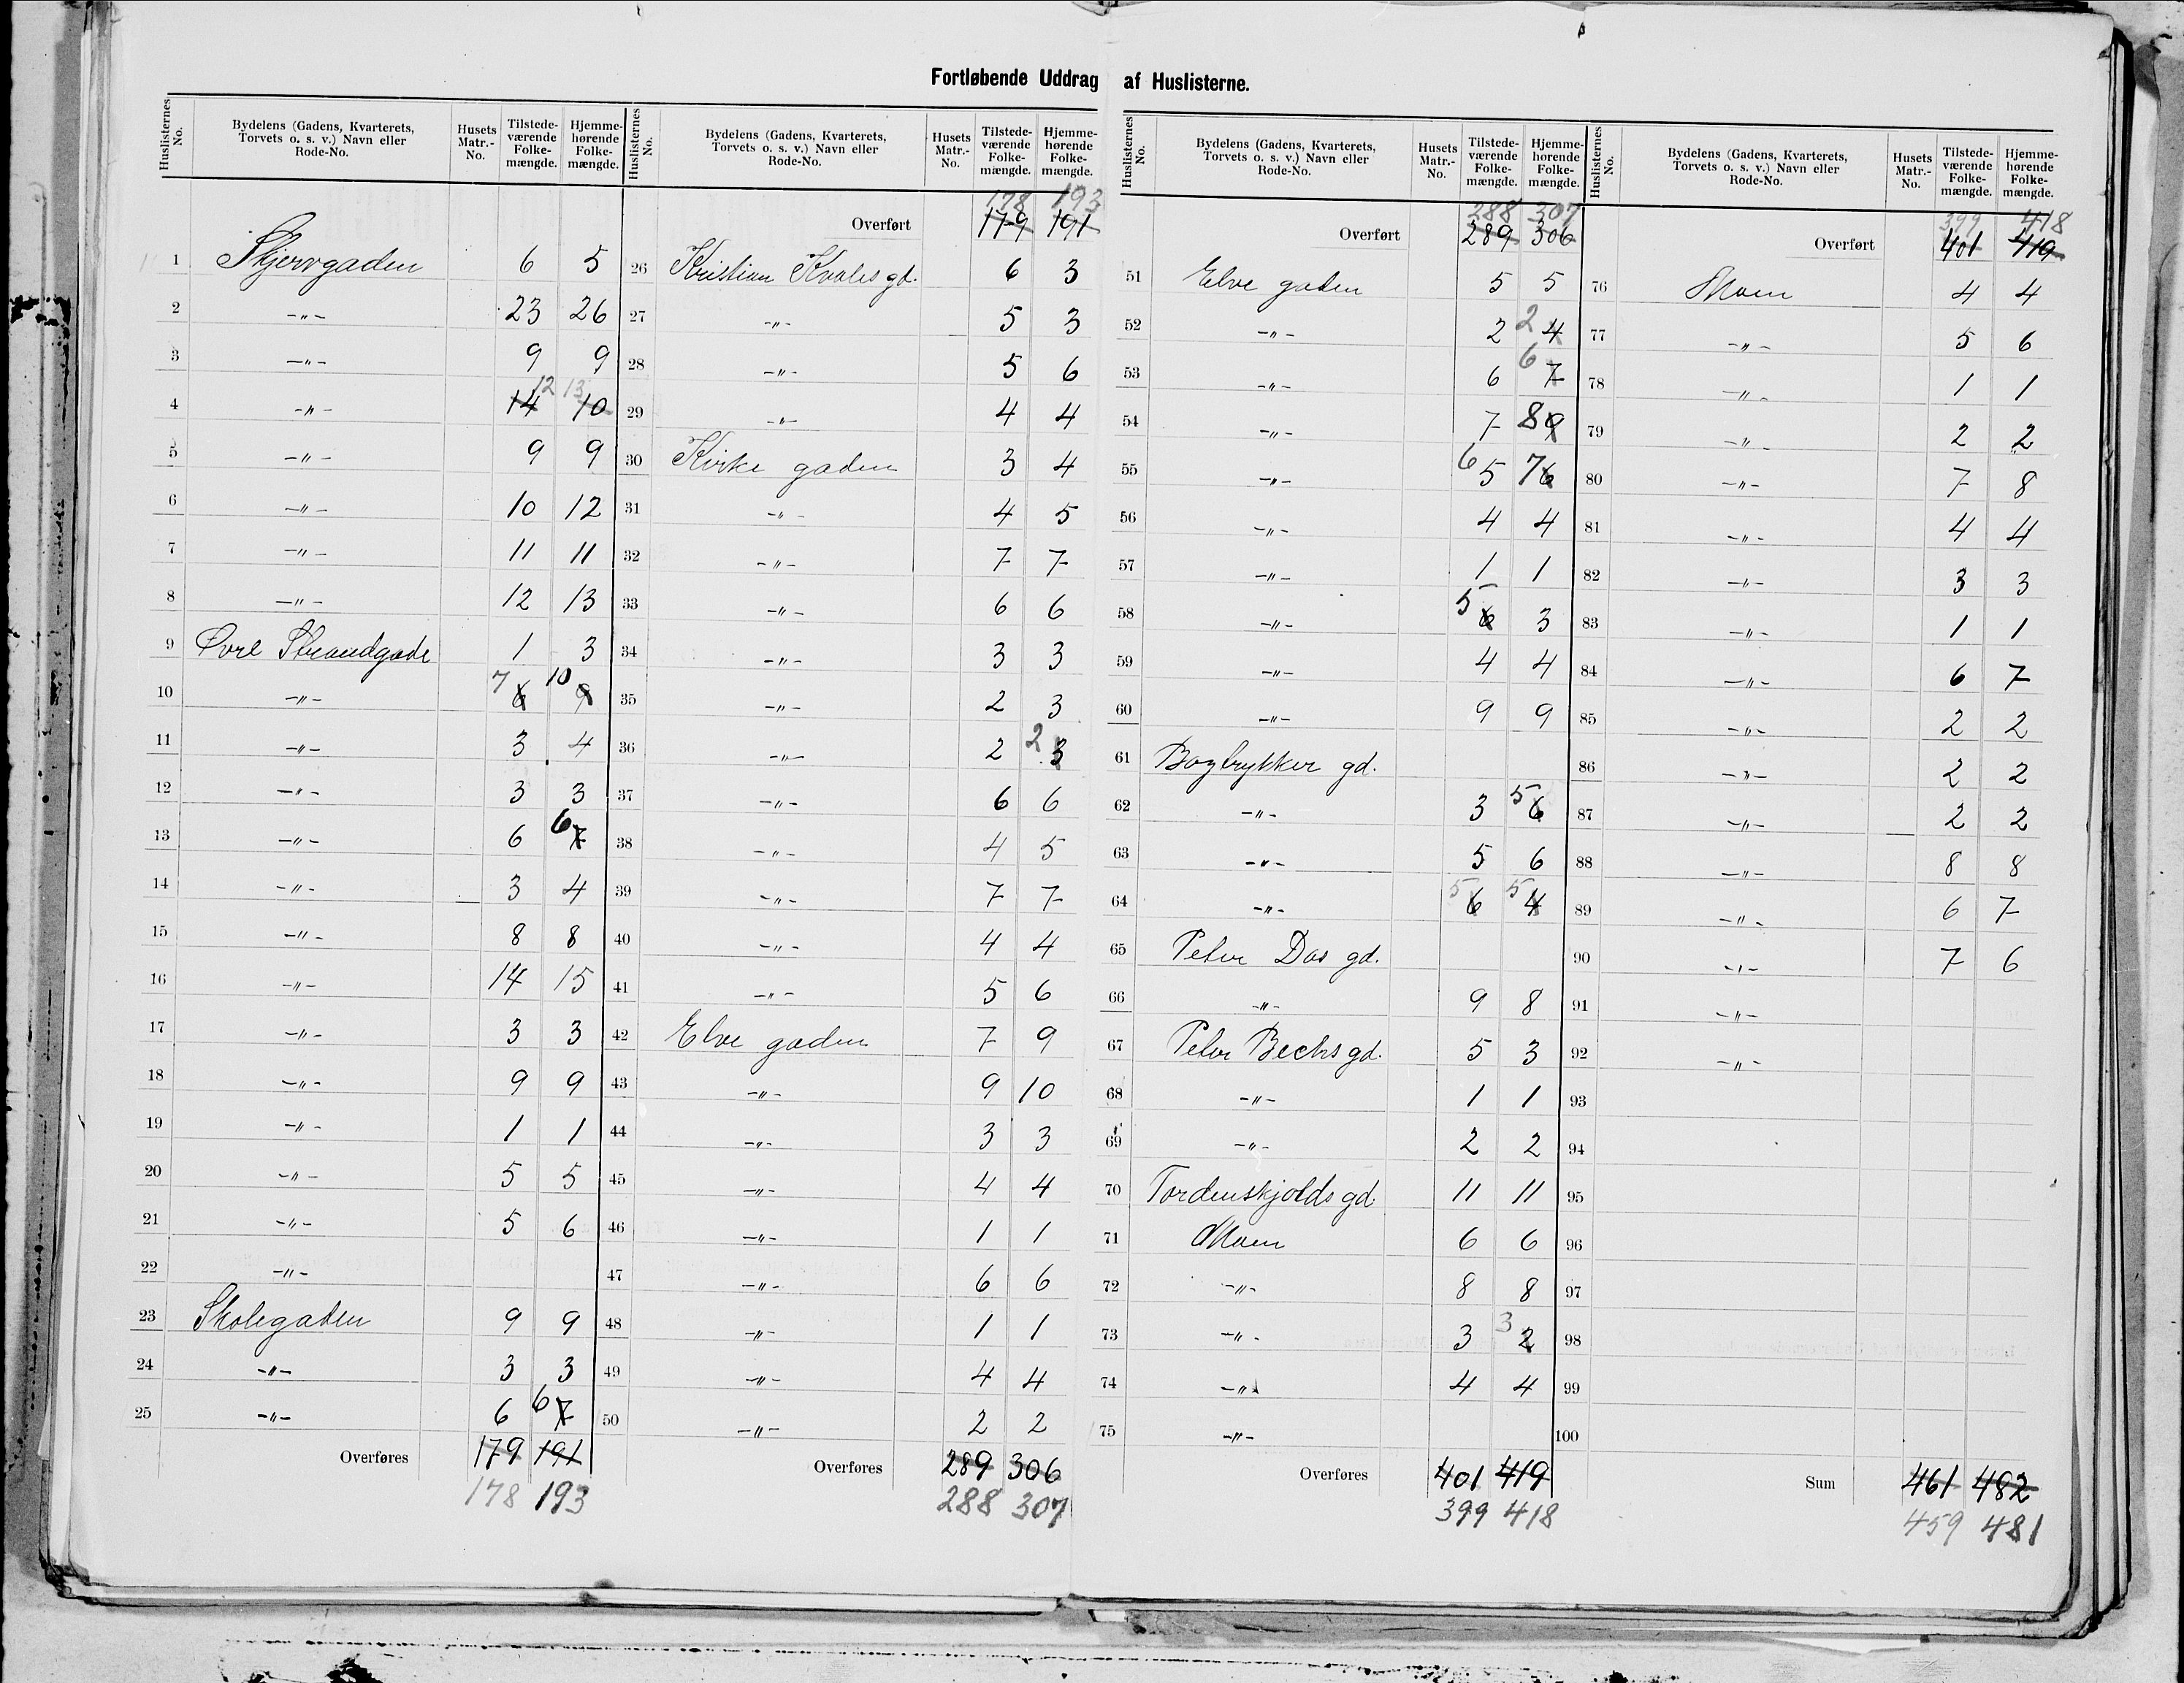 Fortløbende Uddrag af Huslisterne.
Huslisternes No. | Bydelens (Gadens, Kvarterets, Torvets o. s. v.) Navn eller Rode-No. | Husets Matr.-No. | Tilstede-værende Folke-mængde. | Hjemme-hørende Folke-mængde.
1 Skjervgaden 6 5
2 -"- 23 26
3 -"- 9 9
4 -"- 14 12 10 13
5 -"- 9 9
6 -"- 10 12
7 -"- 11 11
8 -"- 12 13
9 Øvre Strandgade 1 3
10 -"- 7 6 10 9
11 -"- 3 4
12 -"- 3 3
13 -"- 6 6 7
14 -"- 3 4
15 -"- 8 8
16 -"- 14 15
17 -"- 3 3
18 -"- 9 9
19 -"- 1 1
20 -"- 5 5
21 -"- 5 6
22 -"-
23 Skolegaden 9 9
24 -"- 3 3
25 -"- 6 6 7
Overføres 179 191
178 193
Huslisternes No. | Bydelens (Gadens, Kvarterets, Torvets o. s. v.) Navn eller Rode-No. | Husets Matr.-No. | Tilstede-værende Folke-mængde. | Hjemme-hørende Folke-mængde.
178 193
Overført 179 191
26 Kristian Kvales gd. 6 3
27 -"- 5 3
28 -"- 5 6
29 -"- 4 4
30 Kirke gaden 3 4
31 -"- 4 5
32 -"- 7 7
33 -"- 6 6
34 -"- 3 3
35 -"- 2 3
36 -"- 2 2 3
37 -"- 6 6
38 -"- 4 5
39 -"- 7 7
40 -"- 4 4
41 -"- 5 6
42 Elve gaden 7 9
43 -"- 9 10
44 -"- 3 3
45 -"- 4 4
46 -"- 1 1
47 -"- 6 6
48 -"- 1 1
49 -"- 4 4
50 -"- 2 2
Overføres 289 306
288 307
Huslisternes No. | Bydelens (Gadens, Kvarterets, Torvets o. s. v.) Navn eller Rode-No. | Husets Matr.-No. | Tilstede-værende Folke-mængde. | Hjemme-hørende Folke-mængde.
288 307
Overført 289 306
51 Elve gaden 5 5
52 -"- 2 2 4
53 -"- 6 6 7
54 -"- 7 8 9
55 -"- 6 5 7 6
56 -"- 4 4
57 -"- 1 1
58 -"- 5 6 3
59 -"- 4 4
60 -"- 9 9
61 Bogtrykker gd.
62 -"- 3 5 6
63 -"- 5 6
64 -"- 5 6 5 4
65 Peter Das gd.
66 -"- 9 8
67 Peter Bechs gd. 5 3
68 -"- 1 1
69 -"- 2 2
70 Tordenskjolds gd. 11 11
71 Moen 6 6
72 -"- 8 8
73 -"- 3 3 2
74 -"- 4 4
75 -"-
Overføres 401 419
399 418
Huslisternes No. | Bydelens (Gadens, Kvarterets, Torvets o. s. v.) Navn eller Rode-No. | Husets Matr.-No. | Tilstede-værende Folke-mængde. | Hjemme-hørende Folke-mængde.
399 418
Overført 401 419
76 Moen 4 4
77 -"- 5 6
78 -"- 1 1
79 -"- 2 2
80 -"- 7 8
81 -"- 4 4
82 -"- 3 3
83 -"- 1 1
84 -"- 6 7
85 -"- 2 2
86 -"- 2 2
87 -"- 2 2
88 -"- 8 8
89 -"- 6 7
90 -"- 7 6
91 -"-
92 -"-
93
94
95
96
97
98
99
100
Sum 461 482
459 481